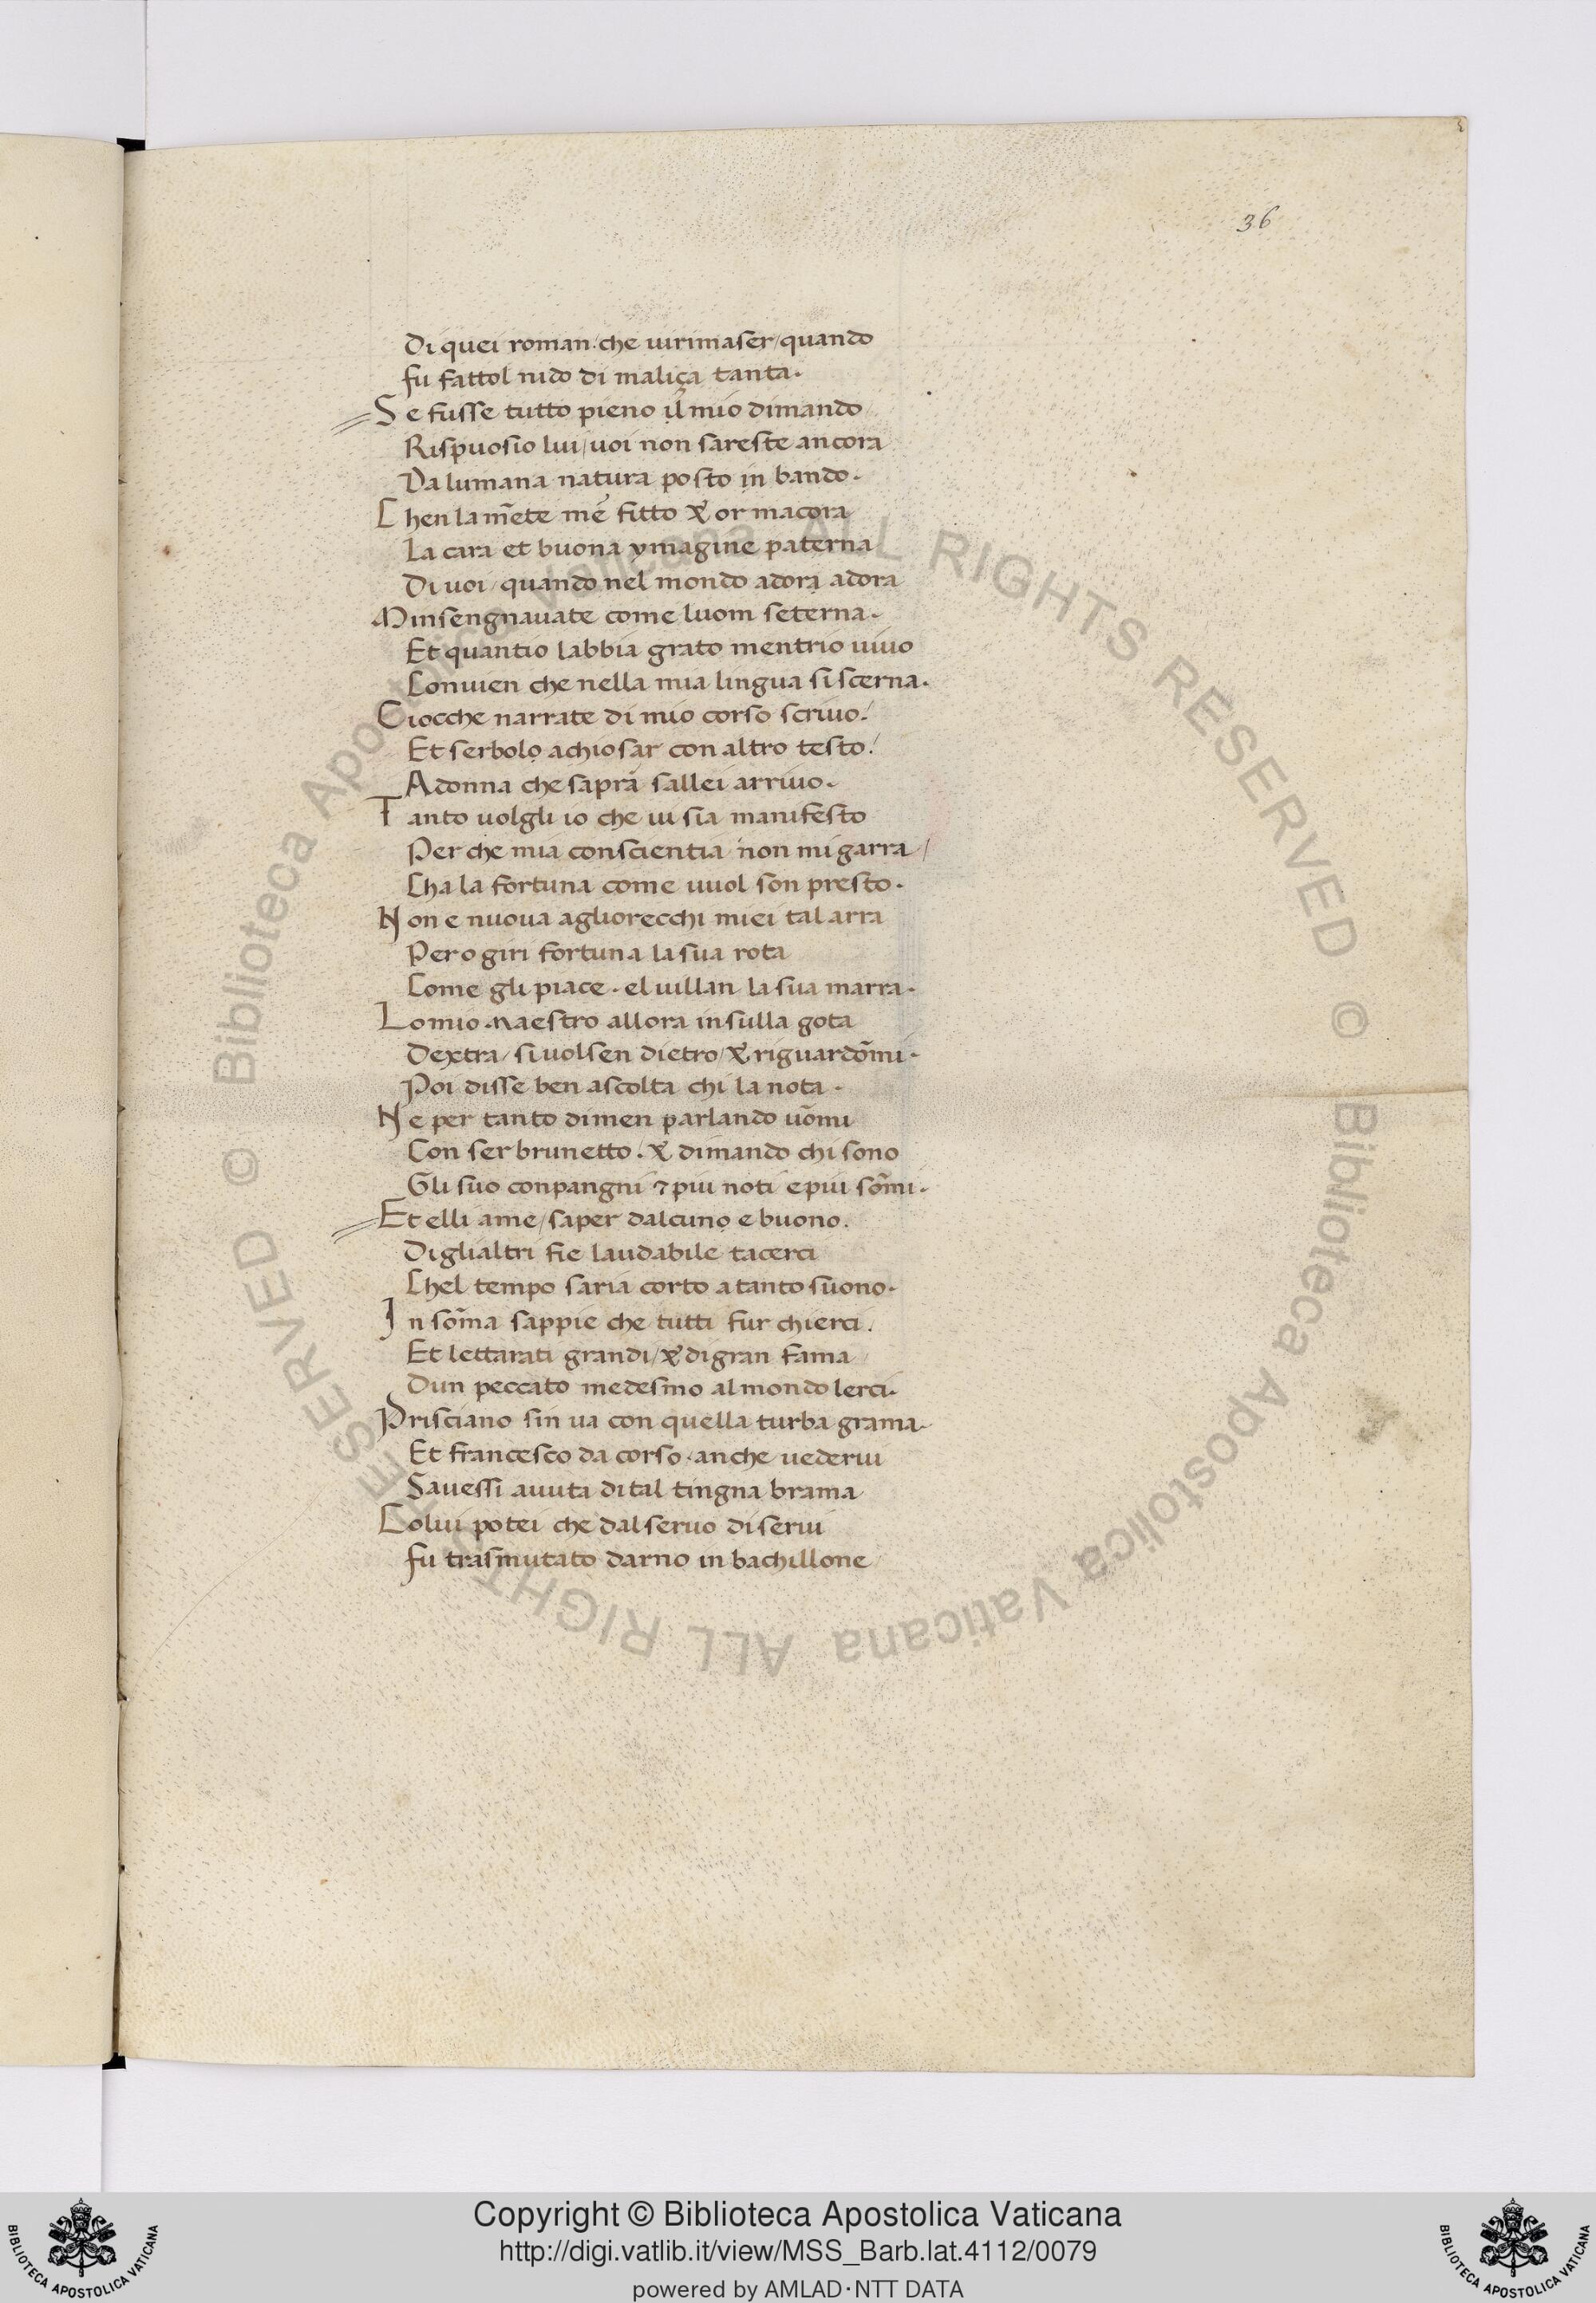 36
Di quei roman. che uirimaser/quando
fu fattol nido di maliça tanta.
Se fusse tutto pieno il mio dimando
Rispuosio lui/uoi non sareste ancora
Da lumana natura posto in bando.
Chen la m̄ete me fitto & or macora
La cara et buona ymagine paterna
Di uoi/quando nel mondo adora adora
Minsengnauate come luom seterna.
Et quantio labbia grato mentrio uiuo
Conuien che nella mia lingua si scerna.
Ciocche narrate di mio corso scriuo/
Et serbolo achiosar con altro testo/
A donna che sapra sallei arriuo.
Tanto uolgli io che ui sia manifesto
Per che mia conscientia non mi garra/
Cha la fortuna come uuol son presto.
Non e nuoua agliorecchi miei tal arra
Pero giri fortuna la sua rota
Come gli piace. el uillan la sua marra.
Lo mio maestro allora insulla gota
Dextra/si uolsen dietro/& riguardōmi.
Poi disse ben ascolta chi la nota.
Ne per tanto dimen parlando uōmi
Con ser brunetto. & dimando chi sono
Gli suo conpangni 7 piu noti e piu sōmi.
Et elli ame/saper dalcuno e buono.
Deglialtri fie laudabile tacerci
Chel tempo saria corto a tanto suono.
In sōma sappie che tutti fur chierci.
Et lettarati grandi/& di gran fama
Dun peccato medesmo al mondo lerci.
Prisciano sin ua con quella turba grama.
Et francesco da corso. anche uederui
Sauessi auuta di tal tingna brama
Colui potei che dal seruo di serui
fu trasmutato darno in bachillone
© Biblioteca Apostolica Vaticana ALL RIGHTS RESERVED
© Biblioteca Apostolica Vaticana ALL RIGHTS RESERVED
Copyright © Biblioteca Apostolica Vaticana
http://digi.vatlib.it/view/MSS_Barb.lat.4112/0079
powered by AMLAD·NTT DATA
BIBLIOTECA APOSTOLICA VATICANA
BIBLIOTECA APOSTOLICA VATICANA